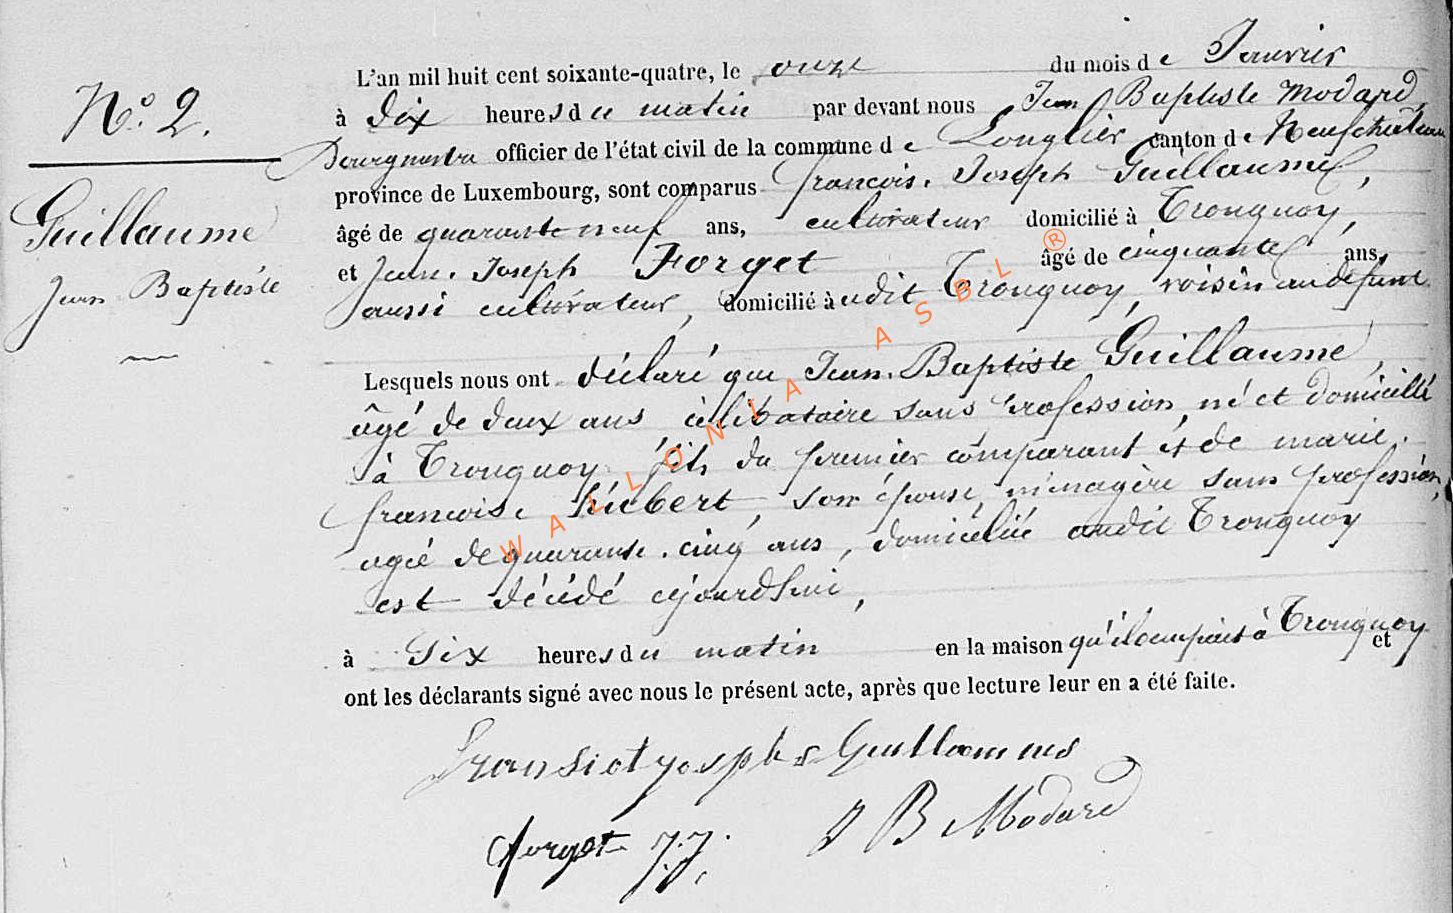 N.° 2.
Guillaume
Jean Baptiste
L'an mil huit cent soixante-quatre, le onze du mois de Janvier
à dix heures du matin par devant nous Jean Baptiste Modard,
Bourgmestre officier de l'état civil de la commune de Longlier canton de Neufchateau
province de Luxembourg, sont comparus francois. Joseph Guillaume,
âgé de quarante neuf ans, cultivateur domicilié à Tronquoy,
et Jean. Joseph Forget âgé de cinquante ans,
aussi cultivateur, domicilié à udit Tronquoy, voisin au défunt
Lesquels nous ont déclaré que Jean. Baptiste Guillaume,
âgé de deux ans célibataire sans profession, né et domicilié
à Tronquoy fils du premier comparant et de marie.
francoise Hébert, son épouse, ménagère sans profession,
agée de quarante. cinq ans, domiciliée audit Tronquoy
est décédé cejourdhui,
à Six heures du matin en la maison qu'il occupait à Tronquoy et
ont les déclarants signé avec nous le présent acte, après que lecture leur en a été faite.
Guillaumes
forget J.J. J B Modard
WALLONIA ASBL ®